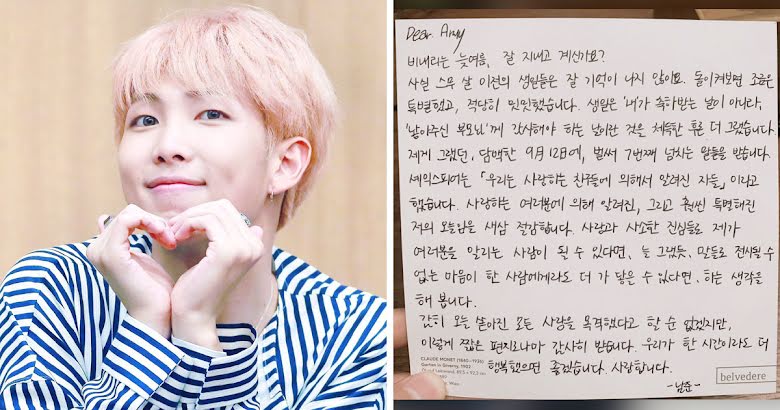 Dear Army
비내리는 늦여름, 잘 지내고 계신가요?
사실 스무 살 이전의 생일들은 잘 기억이 나지 않아요. 돌이켜보면 조금은
특별했고, 적당히 밋밋했습니다. 생일은 '내가 축하받는 날이 아니라,
'낳아주신 부모님'께 감사해야 하는 날이란 것을 체득한 후론 더 그랬습니다.
제게 그랬던, 담백한 9月 12日에, 벌써 7번째 넘치는 말들을 받습니다.
셰익스피어는 「우리는 사랑하는 친구들에 의해서 알려진 자들」이라고
했습니다. 사랑하는 여러분에 의해 알려진, 그리고 훨씬 특별해진
저의 오늘임을 새삼 절감합니다. 사랑과 사소한 진심들로 제가
여러분을 알리는 사람이 될 수 있다면, 늘 그랬듯, 말들로 전시될 수
없는 마음이 한 사람에게라도 더 가 닿을 수 있다면, 하는 생각을
해 봅니다.
감히 오늘 쏟아진 모든 사랑을 목격했다고 할 순 없겠지만,
이렇게 짧은 편지로나마 감사히 받습니다. 우리가 한 시간이라도 더
행복했으면 좋겠습니다. 사랑합니다.
-남준-
CLAUDE MONET (1840–1926)
Garten in Giverny, 1902
Wien
belvedere